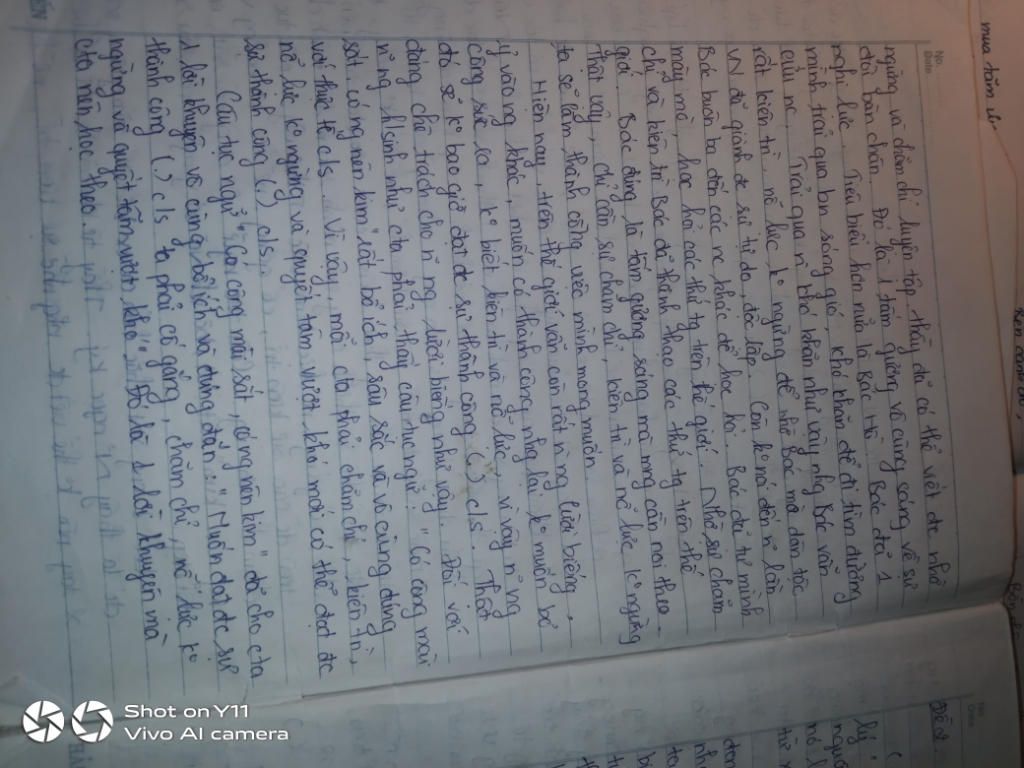 No.
Date
ngừng và chăm chỉ luyện tập, thầy đã có thể viết đc nhờ
đôi bàn chân. Đó là 1 tấm gương vô cùng sáng về sự
nghị lực. Tiêu biểu hơn nữa là Bác Hồ. Bác đã 1
mình trải qua bn sóng gió, khó khăn để đi tìm đường
cứu nc. Trải qua n~ khó khăn như vậy nhg Bác vẫn
rất kiên trì, nỗ lực, ko ngừng để nhờ Bác mà dân tộc
VN đã giành đc sự tự do, độc lập. Còn ko nói đến n~ lần
Bác buôn ba đến các nc khác để học hỏi. Bác đã tự mình
mày mò, học hỏi các thứ tg trên thế giới. Nhờ sự chăm
chỉ và kiên trì Bác đã thành thạo các thứ tg trên thế
giới. Bác đúng là tấm gương sáng mà mng cần noi theo.
Thật vậy, chỉ cần sự chăm chỉ, kiên trì và nỗ lực ko ngừng
ta sẽ làm thành công việc mình mong muốn.
Hiện nay, trên thế giới vẫn còn rất n~ ng lười biếng,
ỷ vào ng khác, muốn có thành công nhg lại ko muốn bỏ
công sức ra, ko biết kiên trì và nỗ lực, vì vậy n~ ng
đó sẽ ko bao giờ đạt đc sự thành công (.) c/s. Thật
đáng chê trách cho n~ ng lười biếng như vậy. Đối với
n~ ng h/sinh như cta phải thấy câu tục ngữ: "Có công mài
sắt, có ngày nên kim" rất bổ ích, sâu sắc và vô cùng đúng
với thực tế c/s. Vì vậy, mà cta phải chăm chỉ, kiên trì,
nỗ lực ko ngừng và quyết tâm vượt khó mới có thể đạt đc
sự thành công (.) c/s.
Câu tục ngữ "Có công mài sắt, có ngày nên kim" đã cho cta
1 lời khuyên vô cùng bổ ích và đúng đắn: "Muốn đạt đc sự
thành công (.) c/s ta phải cố gắng, chăm chỉ, nỗ lực ko
ngừng và quyết tâm vượt khó". Đó là 1 lời khuyên mà
cta nên học theo.
mua tấm
No.
Date
Đề 2:
Shot on Y11
Vivo AI camera